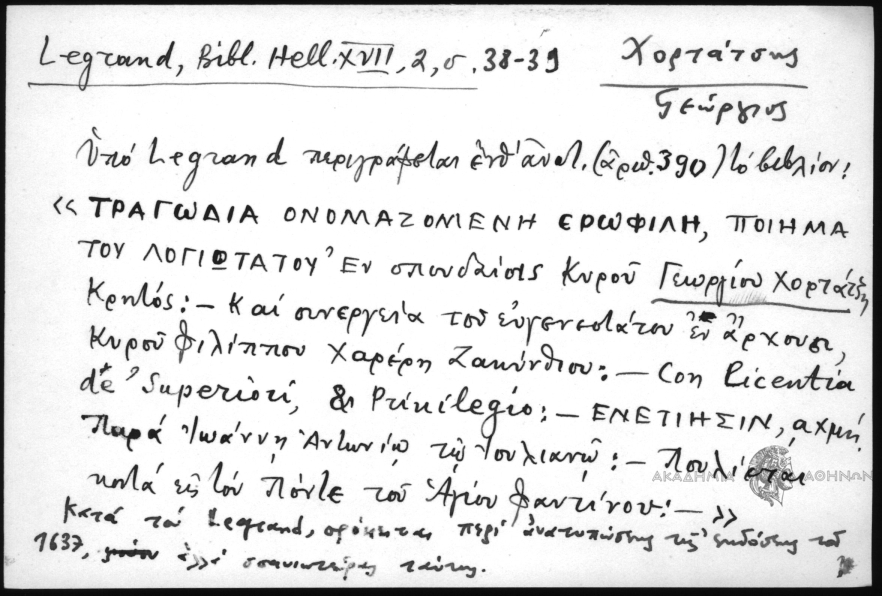 Legrand, Bibl. Hell. XVII, 2, σ. 38-39
Χορτάτσης
Γεώργιος
Ὑπό Legrand περιγράφεται ἐνθ' ἀνωτ. (ἀριθ. 390) τό βιβλίον:
« ΤΡΑΓΩΔΙΑ ΟΝΟΜΑΖΟΜΕΝΗ ΕΡΩΦΙΛΗ, ΠΟΙΗΜΑ
ΤΟΥ ΛΟΓΙΩΤΑΤΟΥ Ἐν σπουδαίοις Κυροῦ Γεωργίου Χορτάτζη
Κρητός: — Καί συνεργεία τοῦ εὐγενεστάτου ἐν ἄρχουσι,
Κυροῦ Φιλίππου Χαρέρη Ζακύνθιου: — Con Licentia
de Superiori, & Privilegio: — ΕΝΕΤΙΗΣΙΝ, αχμή.
Παρά Ἰωάννη Ἀντωνίῳ τῷ Ἰουλιανῷ: — Πουλιέται
κατά εἰς τόν Πόντε τοῦ Ἁγίου Φαντίνου: — »
Κατά τόν Legrand, πρόκειται περί ἀνατυπώσεως τῆς ἐκδόσεως τοῦ
1637, ἀλλά σπανιωτέρας ταύτης.
ΑΚΑΔΗΜΙΑ ΑΘΗΝΩΝ